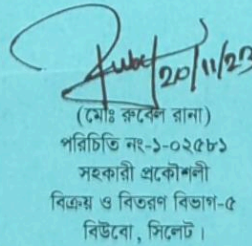 20/11/23
(মোঃ রুবেল রানা)
পরিচিতি নং-১-০২৫৮১
সহকারী প্রকৌশলী
বিক্রয় ও বিতরণ বিভাগ-৫
বিউবো, সিলেট।